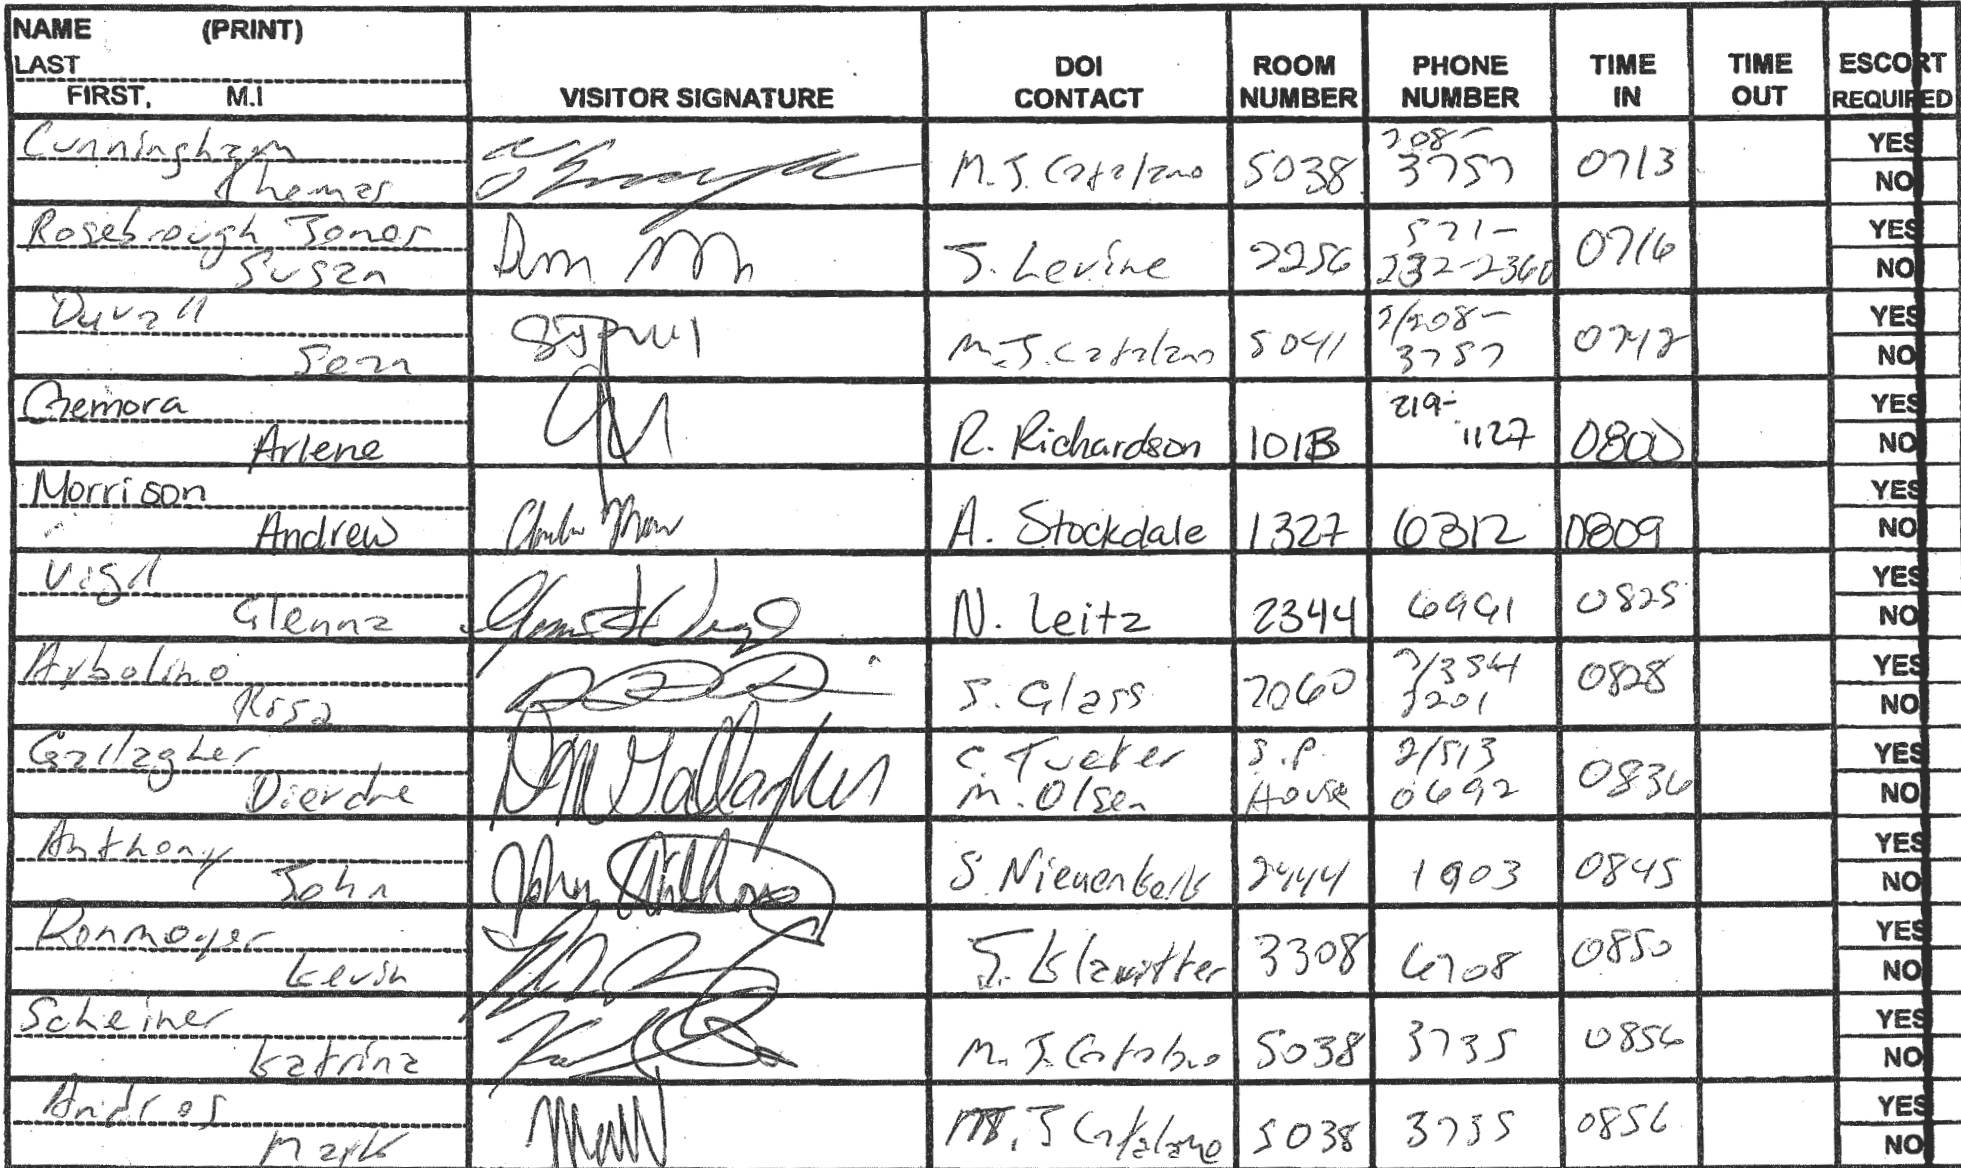 NAME (PRINT)
LAST
FIRST, M.I
VISITOR SIGNATURE
DOI CONTACT
ROOM NUMBER
PHONE NUMBER
TIME IN
TIME OUT
ESCORT REQUIRED
Cunningham
Thomas
M.J. Catalano 5038 208-3757 0713 YES NO
Rosebrough Jones
Susan
J. Levine 2256 571-232-2360 0716 YES NO
Duvall
Sean
M.J. Catalano 5041 2/208-3757 0742 YES NO
Gemora
Arlene
R. Richardson 101B 219-1127 0800 YES NO
Morrison
Andrew
A. Stockdale 1327 6312 0809 YES NO
Vigil
Glenna
N. Leitz 2344 6991 0825 YES NO
Arbolino
Risa
S. Glass 2060 2/354 3201 0828 YES NO
Gallagher
Dierdre
DM Gallagher
C. Tucker
M. Olsen
S.P. House 2/513 0692 0836 YES NO
Anthony
John
John Anthony
S. Nieuenkerk 2444 1903 0845 YES NO
Ronmoyer
Kevin
J. Klawitter 3308 6708 0850 YES NO
Scheiner
Katrina
M.J. Catalano 5038 3735 0856 YES NO
Andros
Mark
M.J Catalano 5038 3735 0856 YES NO